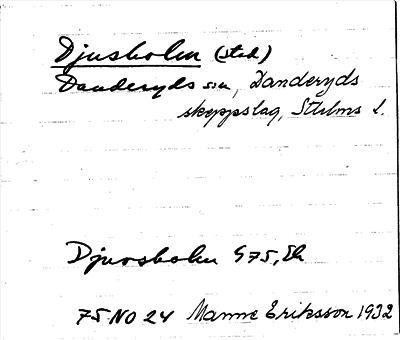 Djursholm (stad)
Danderyds sn, Danderyds
skeppslag, Sthlms l.
Djursholm G75, Ek
75 NO 24 Manne Eriksson 1932